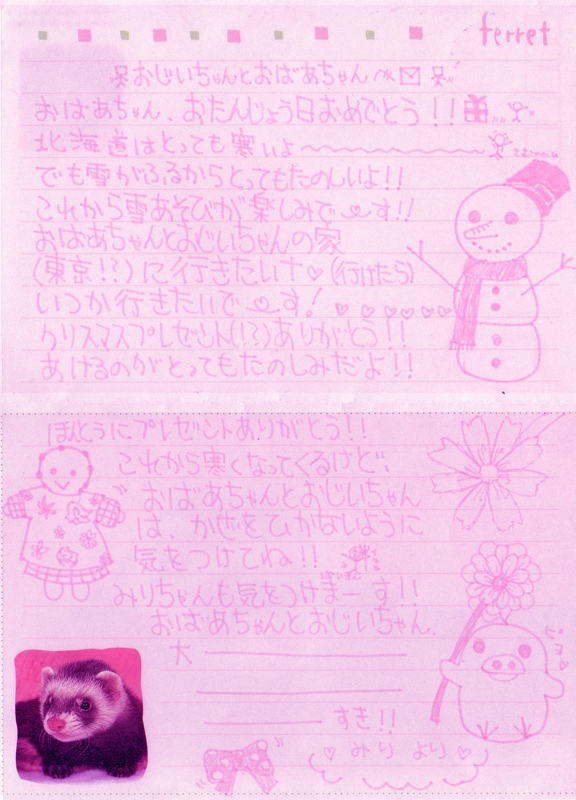 ferret
おじいちゃんとおばあちゃんへ
おばあちゃん、おたんじょう日おめでとう!!
北海道はとっても寒いよ〜
でも雪がふるからとってもたのしいよ!!
これから雪あそびが楽しみで〜す!!
おばあちゃんとおじいちゃんの家
(東京!?)に行きたいナ♡(行けたら)
いつか行きたいで〜す! ♡♡♡♡♡♡
クリスマスプレゼント(!?)ありがとう!!
あけるのがとってもたのしみだよ!!
ほんとうにプレゼントありがとう!!
これから寒くなってくるけど、
おばあちゃんとおじいちゃん
は、かぜをひかないように
気をつけてね!!
みりちゃんも気をつけまーす!!
おばあちゃんとおじいちゃん、
大
すき!!
ピヨ♡
♡みりより♡